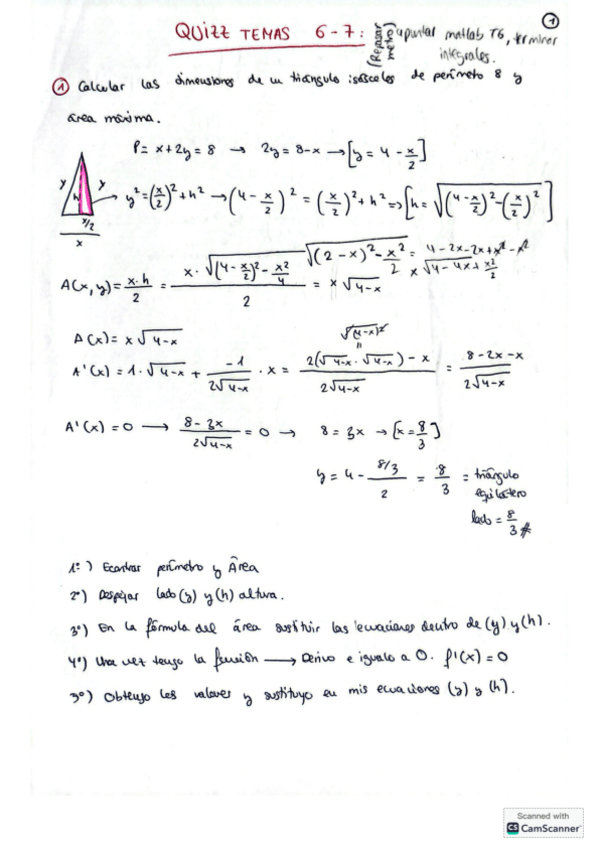 ①
QUIZZ TEMAS 6-7: (Repasar metro) apuntar matlab T6, terminar integrales.
① Calcular las dimensiones de un triángulo isósceles de perímetro 8 y
área máxima.
P= x+2y = 8 → 2y = 8-x → [y = 4 - x/2]
y y h x/2 x
y² = (x/2)² + h² → (4 - x/2)² = (x/2)² + h² => [h = √((4-x/2)² - (x/2)²)]
A(x,y) = x·h/2 = x·√((4-x/2)² - x²/4)/2 = x√(4-x)
A(x) = x√(4-x)
A'(x) = 1·√(4-x) + -1/(2√(4-x)) · x = (2(√(4-x)·√(4-x)) - x)/(2√(4-x)) = (8-2x-x)/(2√(4-x))
√(4-x)²
A'(x) = 0 → (8-3x)/(2√(4-x)) = 0 → 8 = 3x → [x = 8/3]
y = 4 - (8/3)/2 = 8/3 = triángulo
equilátero
lado = 8/3 #
1º) Econtrar perímetro y Área
2º) Despejar lado (y) y (h) altura.
3º) En la fórmula del área sustituir las ecuaciones dentro de (y) y (h).
4º) Una vez tengo la función → Derivo e igualo a 0. f'(x) = 0
5º) Obtengo los valores y sustituyo en mis ecuaciones (y) y (h).
Scanned with
CS CamScanner